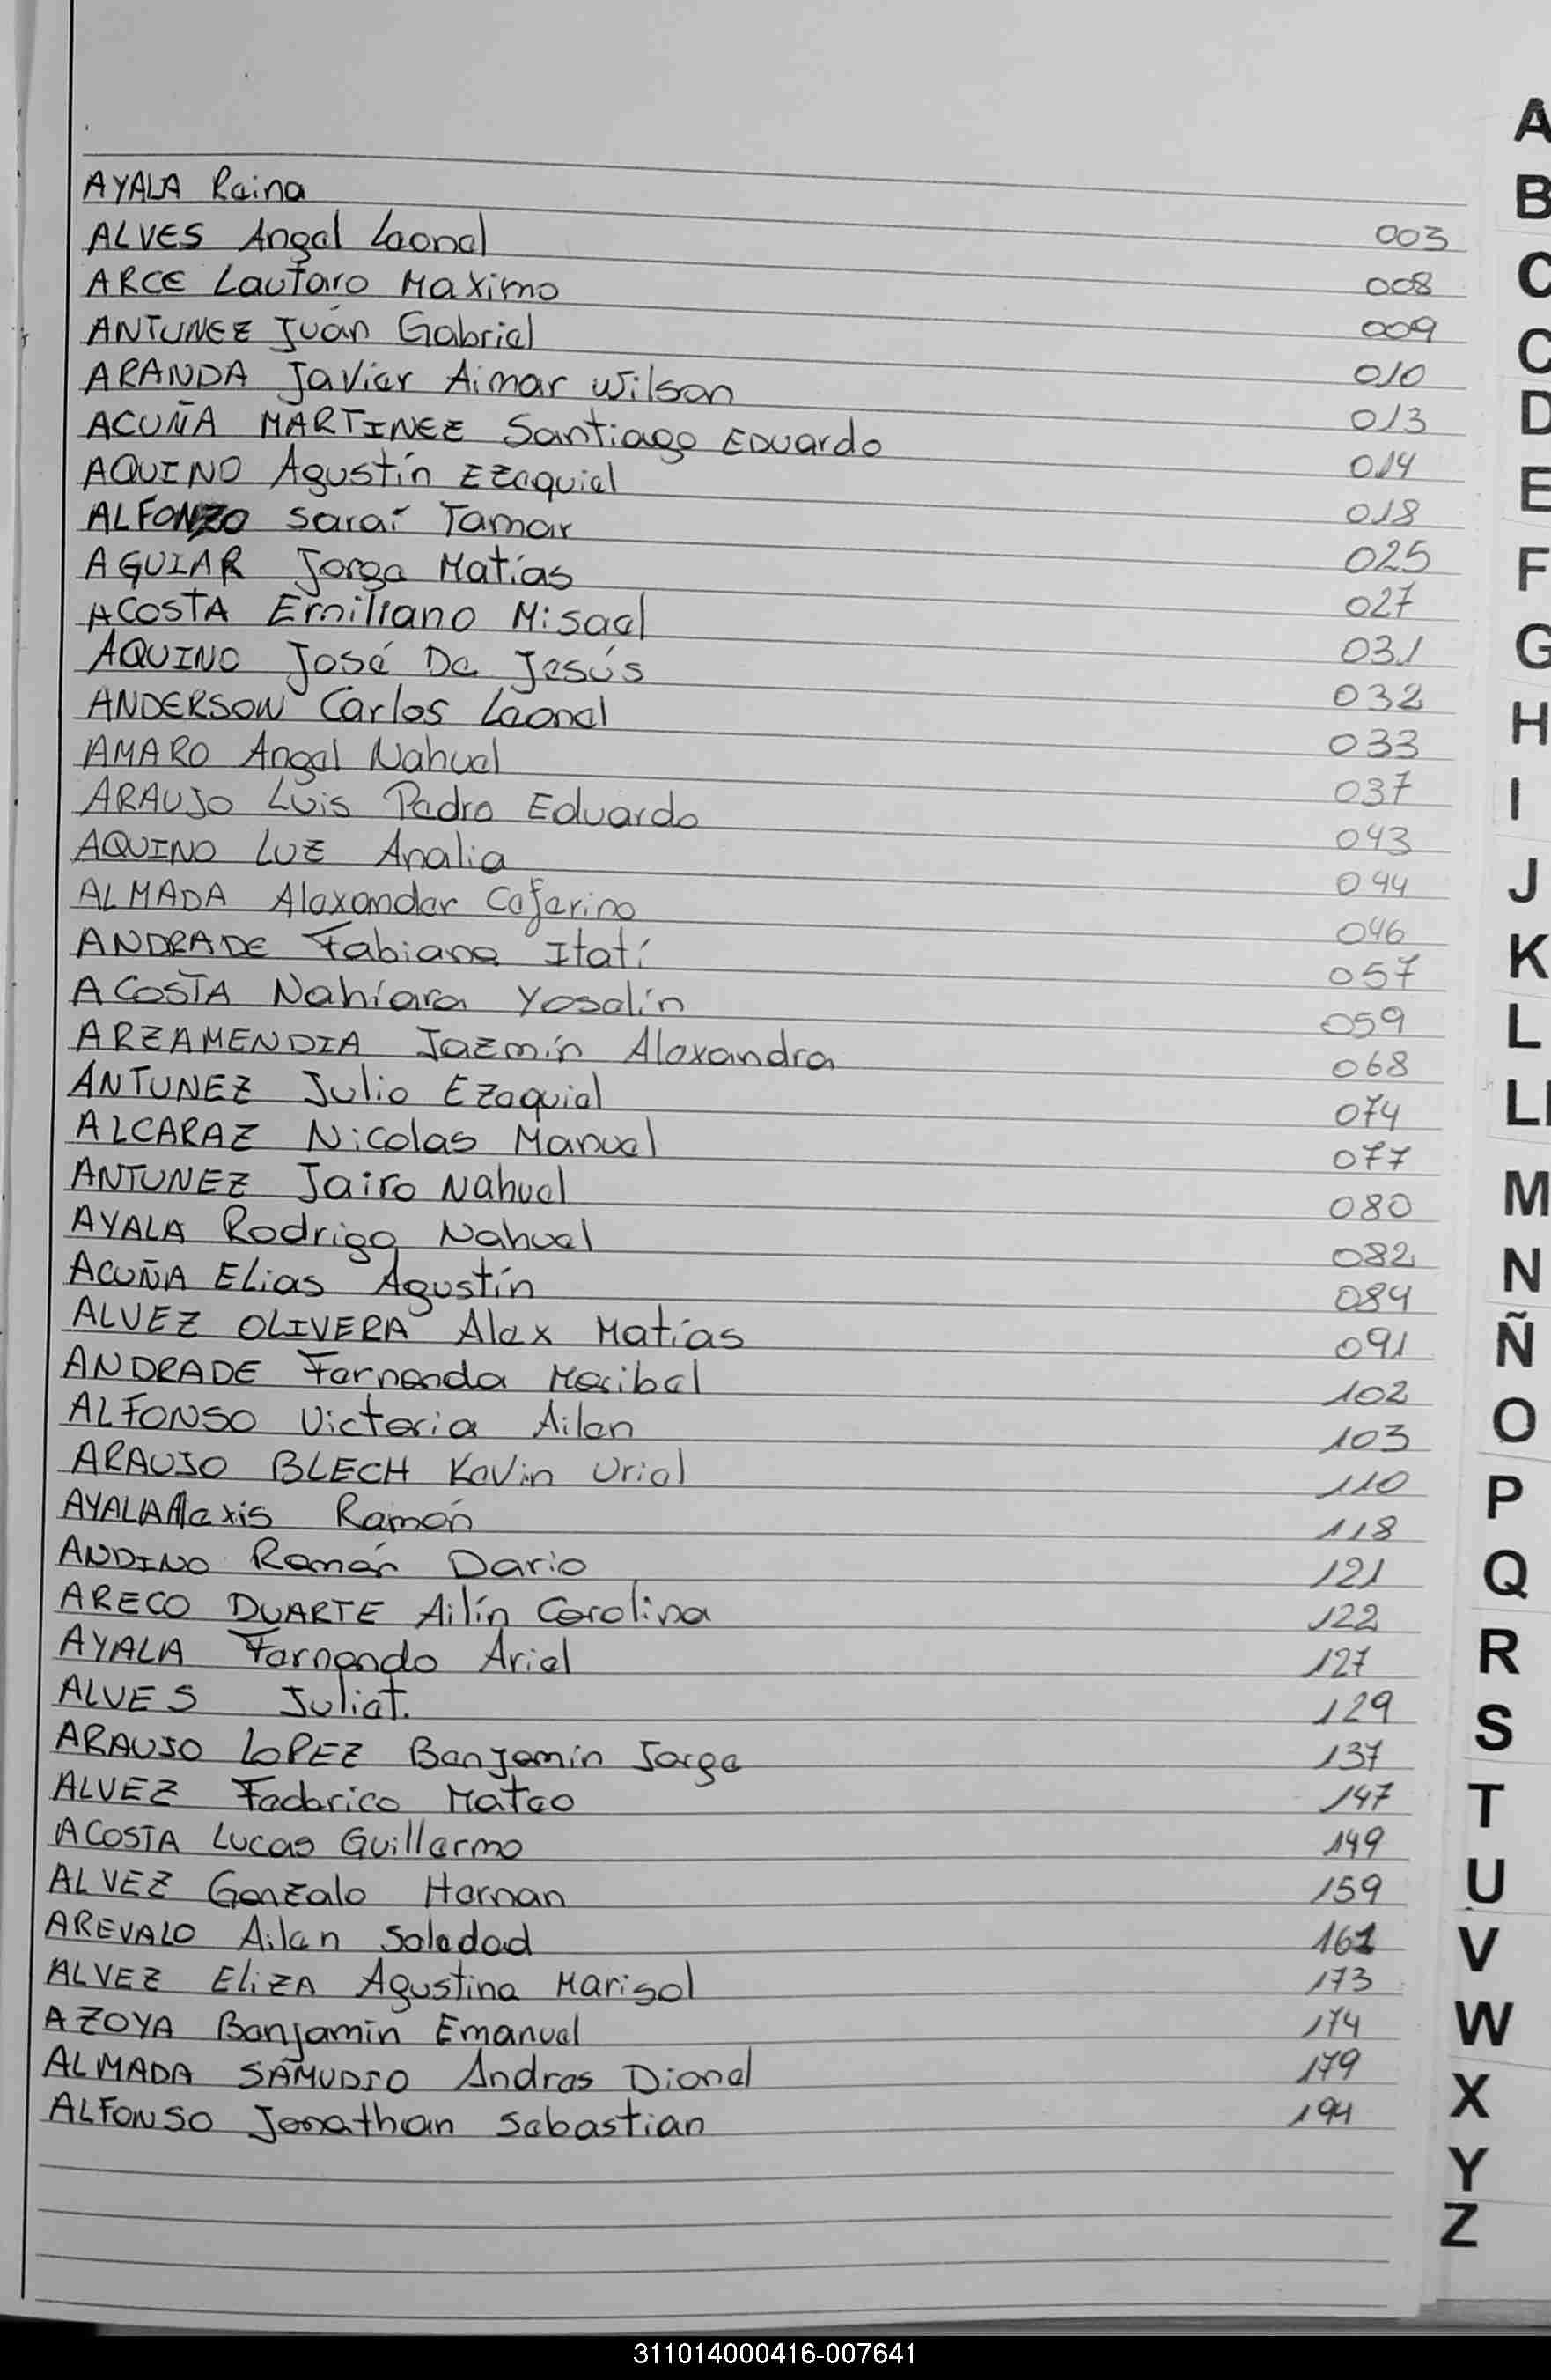 AYALA Reina 003
ALVES Angel Leonel 008
ARCE Lautaro Maximo 009
ANTUNEZ Juán Gabriel 010
ARANDA Javier Aimar Wilson 013
ACUÑA MARTINEZ Santiago Eduardo 014
AQUINO Agustín Ezequiel 018
ALFONZO Saraí Tamar 025
AGUIAR Jorge Matías 027
ACOSTA Emiliano Misael 031
AQUINO José De Jesús 032
ANDERSON Carlos Leonel 033
AMARO Angel Nahuel 037
ARAUJO Luis Pedro Eduardo 043
AQUINO Luz Analia 044
ALMADA Alexander Ceferino 046
ANDRADE Fabiana Itatí 057
ACOSTA Nahíara Yoselín 059
ARZAMENDIA Jazmín Alexandra 068
ANTUNEZ Julio Ezequiel 074
ALCARAZ Nicolas Manuel 077
ANTUNEZ Jairo Nahuel 080
AYALA Rodrigo Nahuel 082
ACUÑA Elias Agustín 084
ALVEZ OLIVERA Alex Matías 091
ANDRADE Fernanda Maribel 102
ALFONSO Victoria Ailen 103
ARAUJO BLECH Kevin Uriel 110
AYALA Alexis Ramón 118
ANDINO Ramón Dario 121
ARECO DUARTE Ailín Carolina 122
AYALA Fernando Ariel 127
ALVES Juliet. 129
ARAUJO LOPEZ Benjamín Jorge 137
ALVEZ Federico Mateo 147
ACOSTA Lucas Guillermo 149
ALVEZ Gonzalo Hernan 159
AREVALO Ailen Soledad 161
ALVEZ ELIZA Agustina Marisol 173
AZOYA Benjamín Emanuel 174
ALMADA SAMUDIO Andres Dionel 179
ALFONSO Jonathan Sebastian 194
A
B
C
C
D
E
F
G
H
I
J
K
L
Ll
M
N
Ñ
O
P
Q
R
S
T
U
V
W
X
Y
Z
311014000416-007641